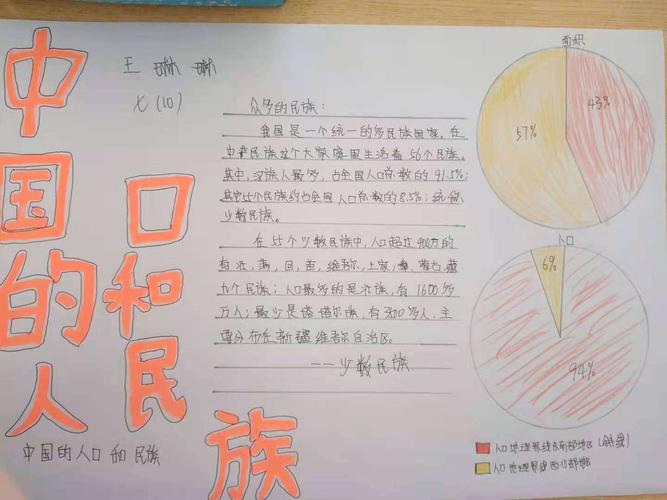 中国的人
口和民
族
王琳琳
七(10)
众多的民族:
我国是一个统一的多民族国家。在
中华民族这个大家庭里生活着56个民族。
其中,汉族人最多,占全国人口总数的91.5%;
其它55个民族约占全国人口总数的8.5%;统称
少数民族。
在55个少数民族中,人口超过400万的
有壮,满,回,苗,维吾尔,土家,彝,蒙古,藏
九个民族;人口最多的是壮族,有1600多
万人;最少是塔塔尔族,有3000多人,主
要分布在新疆维吾尔自治区。
——少数民族
中国的人口和民族
面积
57%
43%
人口
6%
94%
人口地理界线东南部地区(斜线)
人口地理界线西北部地区